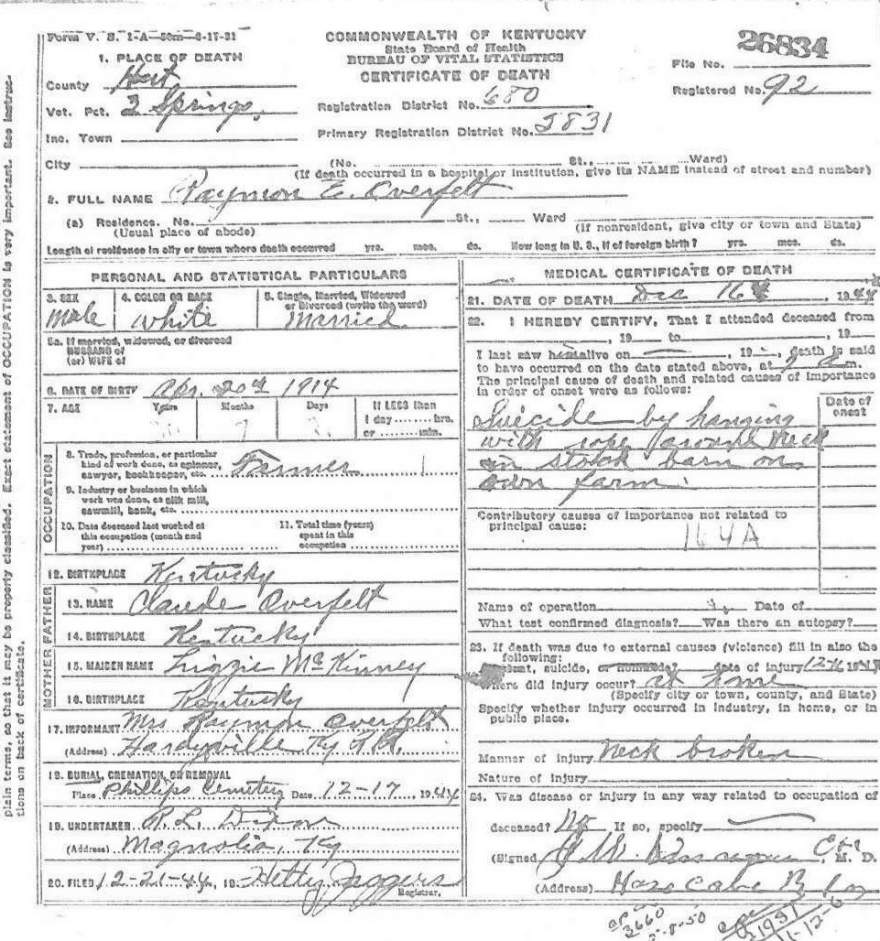 Form V. S. 1-A—50m—8-17-31
COMMONWEALTH OF KENTUCKY
State Board of Health
BUREAU OF VITAL STATISTICS
CERTIFICATE OF DEATH
File No. 26834
Registered No. 92
1. PLACE OF DEATH
County Hart
Vot. Pct. 3 Springs,
Inc. Town
City
Registration District No. 680
Primary Registration District No. 5831
(No. St., Ward)
(If death occurred in a hospital or institution, give its NAME instead of street and number)
2. FULL NAME Raymon E. Overfelt
(a) Residence. No. St., Ward
(Usual place of abode) (If nonresident, give city or town and State)
Length of residence in city or town where death occurred yrs. mos. ds. How long in U. S., if of foreign birth? yrs. mos. ds.
PERSONAL AND STATISTICAL PARTICULARS
3. SEX Male
4. COLOR OR RACE White
5. Single, Married, Widowed
or Divorced (write the word)
Married
5a. If married, widowed, or divorced
HUSBAND of
(or) WIFE of
6. DATE OF BIRTH Apr. 20th 1914
7. AGE Years Months Days If LESS than
1 day ........ hrs.
or ........ min.
7
OCCUPATION
8. Trade, profession, or particular
kind of work done, as spinner,
sawyer, bookkeeper, etc. Farmer
9. Industry or business in which
work was done, as silk mill,
sawmill, bank, etc.
10. Date deceased last worked at
this occupation (month and
year)
11. Total time (years)
spent in this
occupation
12. BIRTHPLACE Kentucky
FATHER
13. NAME Claude Overfelt
14. BIRTHPLACE Kentucky
MOTHER
15. MAIDEN NAME Lizzie McKinney
16. BIRTHPLACE Kentucky
17. INFORMANT Mrs Raymon Overfelt
(Address) Hardyville Ky
18. BURIAL, CREMATION, OR REMOVAL
Place Phillips Cemetery Date 12-17, 1944
19. UNDERTAKER R. L.
(Address) Magnolia, Ky
20. FILED 12-21-44, 19 Hettie Jaggers
Registrar.
MEDICAL CERTIFICATE OF DEATH
21. DATE OF DEATH Dec 16th, 1944
22. I HEREBY CERTIFY, That I attended deceased from
, 19 to , 19
I last saw h alive on , 19 , death is said
to have occurred on the date stated above, at m.
The principal cause of death and related causes of importance
in order of onset were as follows:
Date of
onset
Suicide by hanging
with rope around neck
in stock barn on
own farm.
Contributory causes of importance not related to
principal cause:
164A
Name of operation Date of
What test confirmed diagnosis? Was there an autopsy?
23. If death was due to external causes (violence) fill in also the
following:
Accident, suicide, or homicide? Date of injury 12-16 1944
Where did injury occur? at home
(Specify city or town, county, and State)
Specify whether injury occurred in industry, in home, or in
public place.
Manner of injury Neck broken
Nature of injury
24. Was disease or injury in any way related to occupation of
deceased? No If so, specify
(Signed) M. D.
(Address)
3660
plain terms, so that it may be properly classified. Exact statement of OCCUPATION is very important. See instruc-
tions on back of certificate.